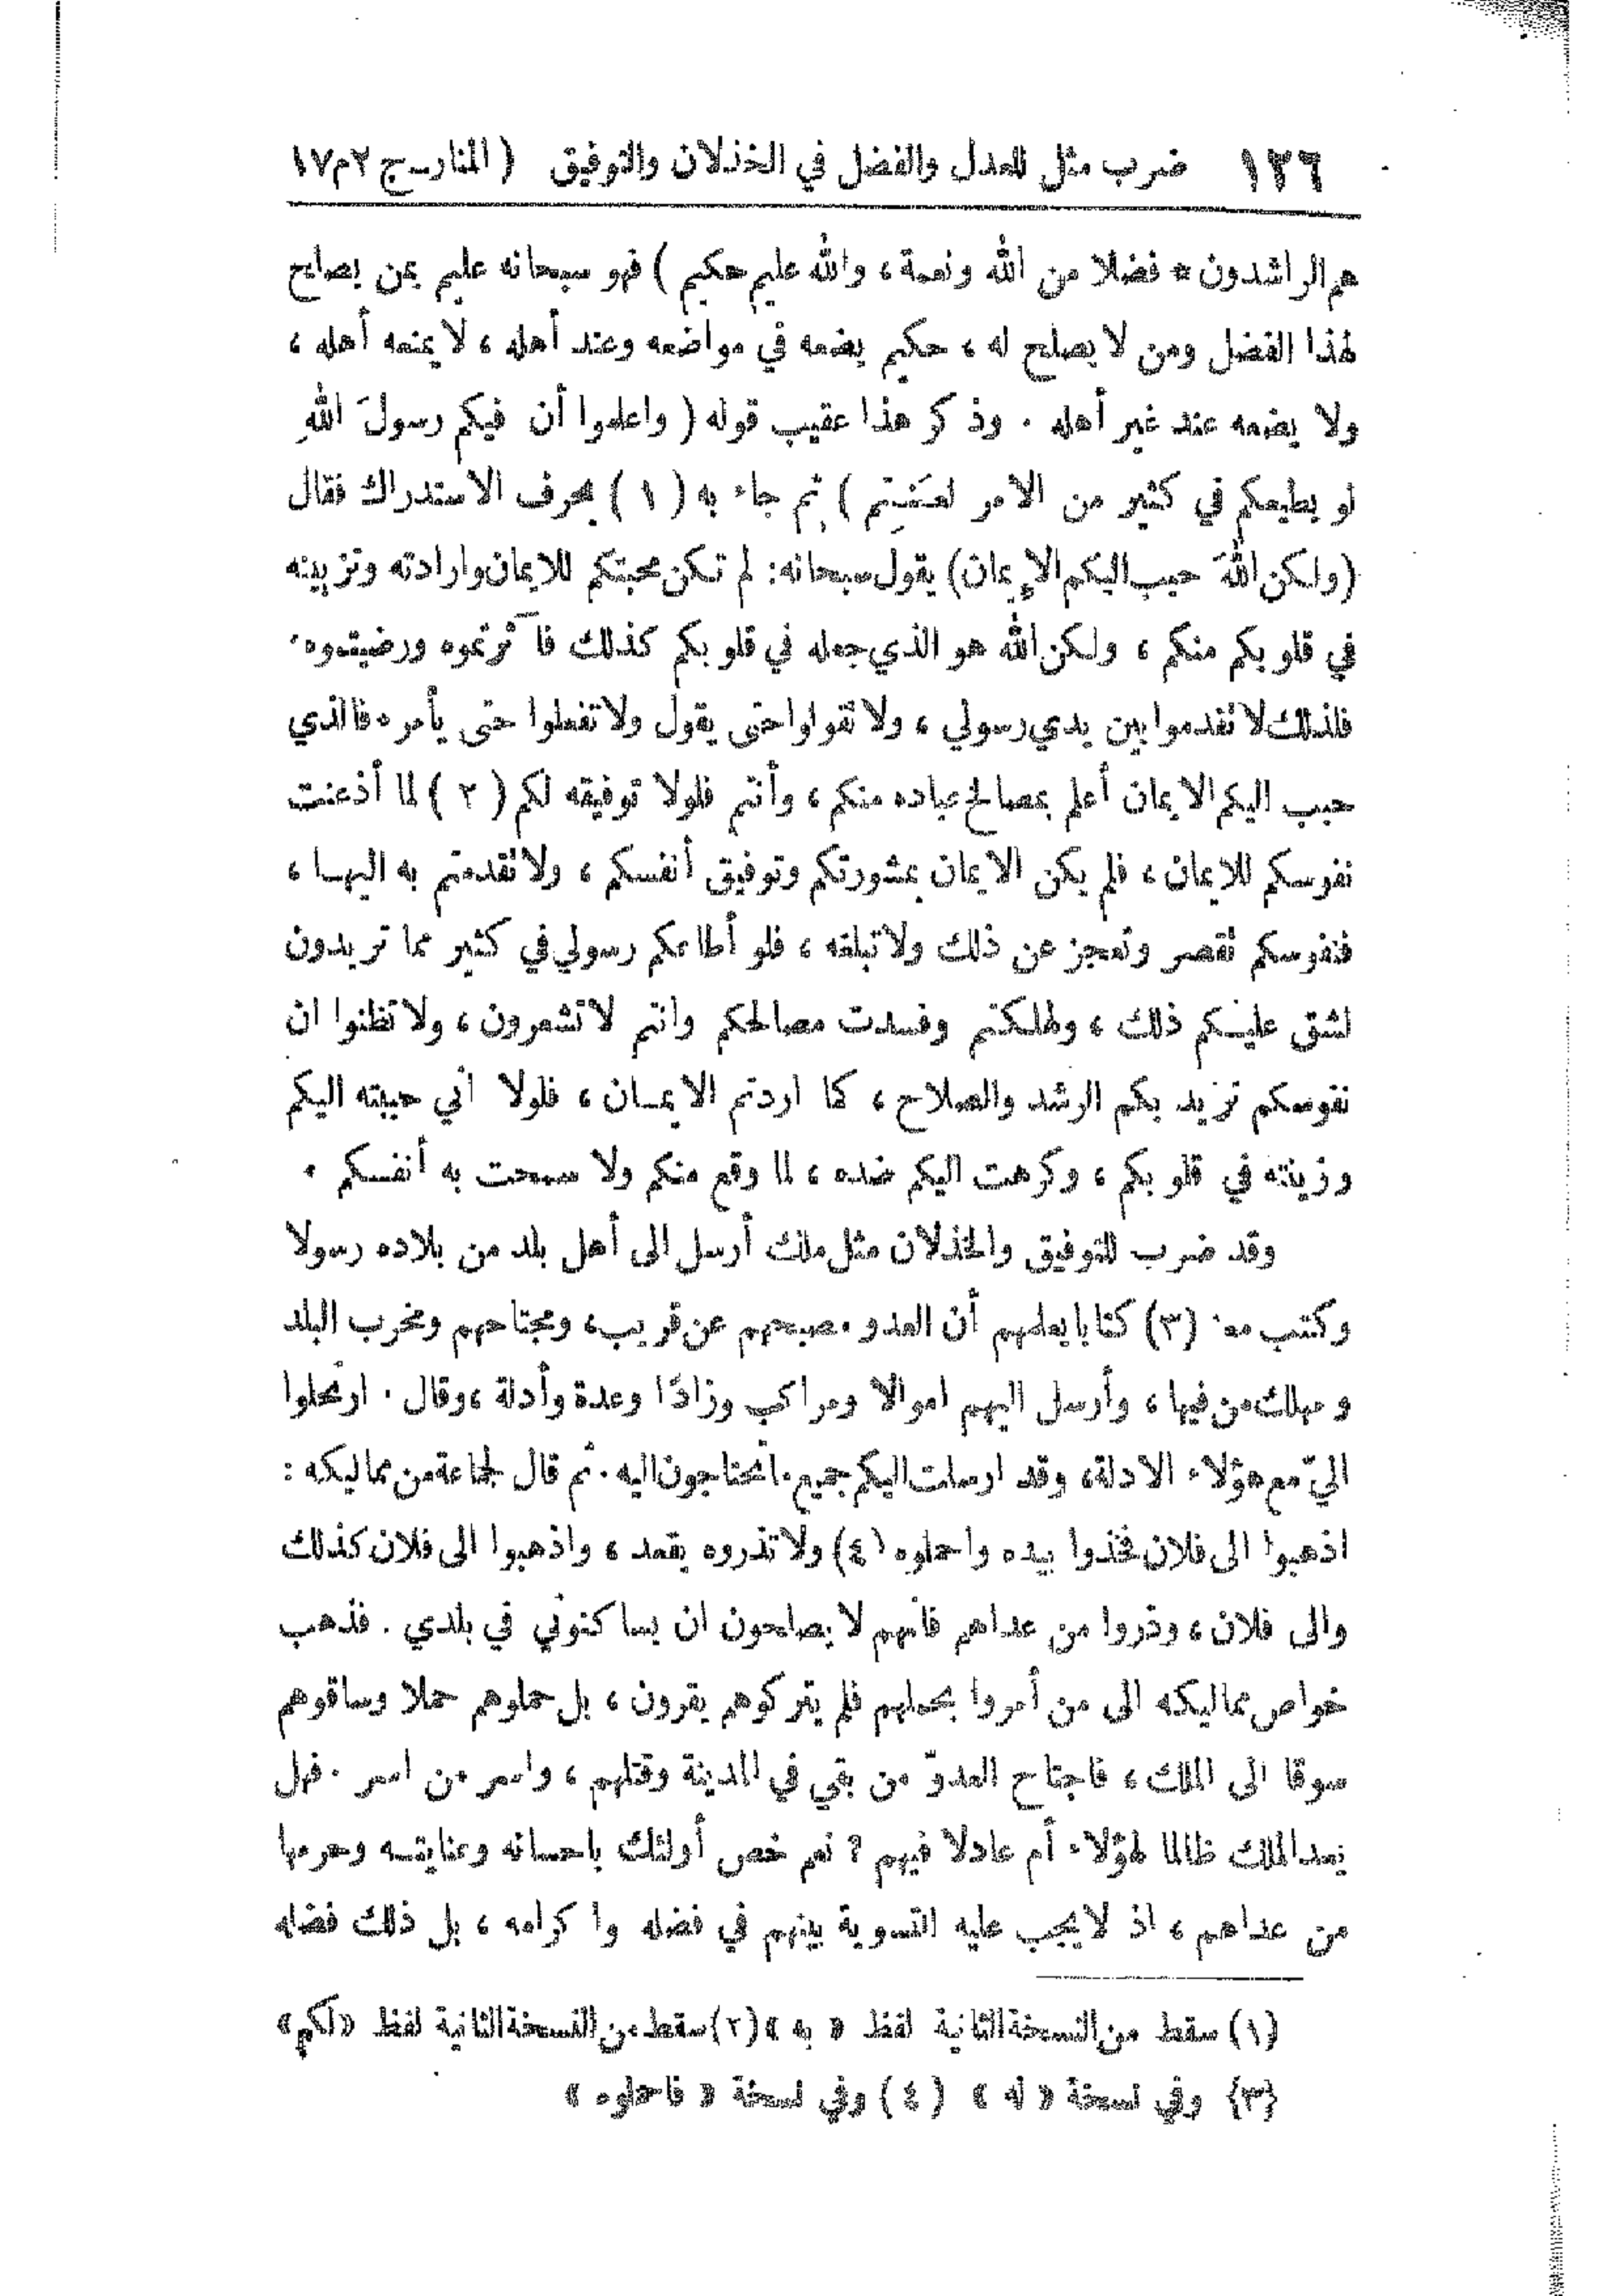 ١٢٦ ضرب مثل للعدل والفضل في الخذلان والتوفيق ( المنار ـ ج ٢ م ١٧
هم الراشدون * فضلا من الله ونعمة ، والله عليم حكيم ) فهو سبحانه عليم بمن يصلح
لهذا الفضل ومن لا يصلح له ، حكيم يضعه في مواضعه وعند أهله ، لا يمنعه أهله ،
ولا يضعه عند غير أهله . وذكر هذا عقيب قوله ( واعلموا أن فيكم رسولَ اللهِ
لو يطيعكم في كثير من الامر لعَنتِتم ) ثم جاء به ( ١ ) بحرف الاستدراك فقال
(ولكن اللهَ حبب اليكم الإيمان) يقول سبحانه : لم تكن محبتكم للايمان وارادته وتزيينه
في قلوبكم منكم ، ولكن الله هو الذي جعله في قلوبكم كذلك فآثرتموه ورضيتموه .
فلذلك لا تقدموا بين يدي رسولي ، ولا تقولوا حتى يقول ولا تفعلوا حتى يأمر ، فالذي
حبب اليكم الايمان أعلم بمصالح عباده منكم ، وأنتم فلولا توفيقه لكم ( ٢ ) لما أذعنت
نفوسكم للايمان ، فلم يكن الايمان بمشورتكم وتوفيق أنفسكم ، ولا تقدمتم به اليها ،
فنفوسكم تقصر وتعجز عن ذلك ولا تبلغه ، فلو أطاعكم رسولي في كثير مما تريدون
لشق عليكم ذلك ، ولهلكتم وفسدت مصالحكم وانتم لا تشعرون ، ولا تظنوا ان
نفوسكم تريد بكم الرشد والصلاح ، كما اردتم الايمان ، فلولا اني حببته اليكم
وزينته في قلوبكم ، وكرهت اليكم ضده ، لما وقع منكم ولا سمحت به أنفسكم .
وقد ضرب للتوفيق والخذلان مثل ملك أرسل الى أهل بلد من بلاده رسولا
وكتب معه (٣) كتابا يعلمهم أن العدو مصبحهم عن قريب ، ومجتاحهم ومخرب البلد
ومهلك من فيها ، وأرسل اليهم اموالا ومراكب وزادًا وعدة وأدلة ، وقال . ارتحلوا
اليّ مع هؤلاء الادلة ، وقد ارسلت اليكم جميع ما تحتاجون اليه . ثم قال لجماعة من مماليكه :
اذهبوا الى فلان فخذوا بيده واحملوه (٤) ولا تذروه يقعد ، واذهبوا الى فلان كذلك
والى فلان ، وذروا من عداهم فانهم لا يصلحون ان يساكنوني في بلدي . فذهب
خواص مماليكه الى من أمروا بحملهم فلم يتركوهم يقرون ، بل حملوهم حملا وساقوهم
سوقا الى الملك ، فاجتاح العدوّ من بقي في المدينة وقتلهم ، واسر من اسر . فهل
يعد الملك ظالما لهؤلاء أم عادلا فيهم ؟ نعم خص أولئك باحسانه وعنايته وحرمها
من عداهم ، اذ لا يجب عليه التسوية بينهم في فضله واكرامه ، بل ذلك فضله
(١) سقط من النسخة الثانية لفظ « به » (٢) سقط من النسخة الثانية لفظ «لكم»
(٣) وفي نسخة « له » (٤) وفي نسخة « فاحملوه »